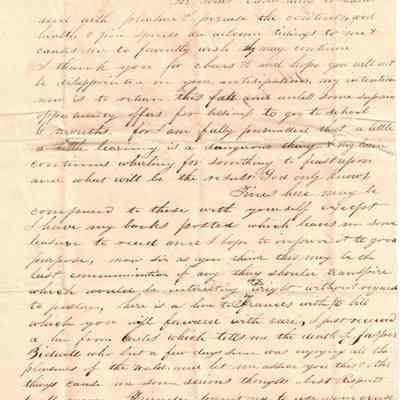 seen with pleasure I peruse the contents, and
health & fine spirits are welcome tidings to me &
causes me to fervently wish they may continue
I thank you for and hope you will not
be disappointed in your anticipations, my intention
now is to return this fall and unless some superior
opportunity offers for to go to school
6 months. for am fully persuaded that a little
learning is a dangerous thing & my
continues whirling for something to
and what will be the result God only knows
Times here may be
compared to those with yourself except
I have my books posted which leaves me some
leisure to read and I hope to improve it to good
purpose, now sir as you think this may be the
last communication if any thing should transpire
which would be interesting Wright without regard
to , here is a line to Frances with
which you will forward with care, I just received
a line from which tells me the death of Jasper
Bidwell who but a few days since was enjoying all the
pleasures of the world, and let me you this,
things cause me some serious thoughts. best respects
to